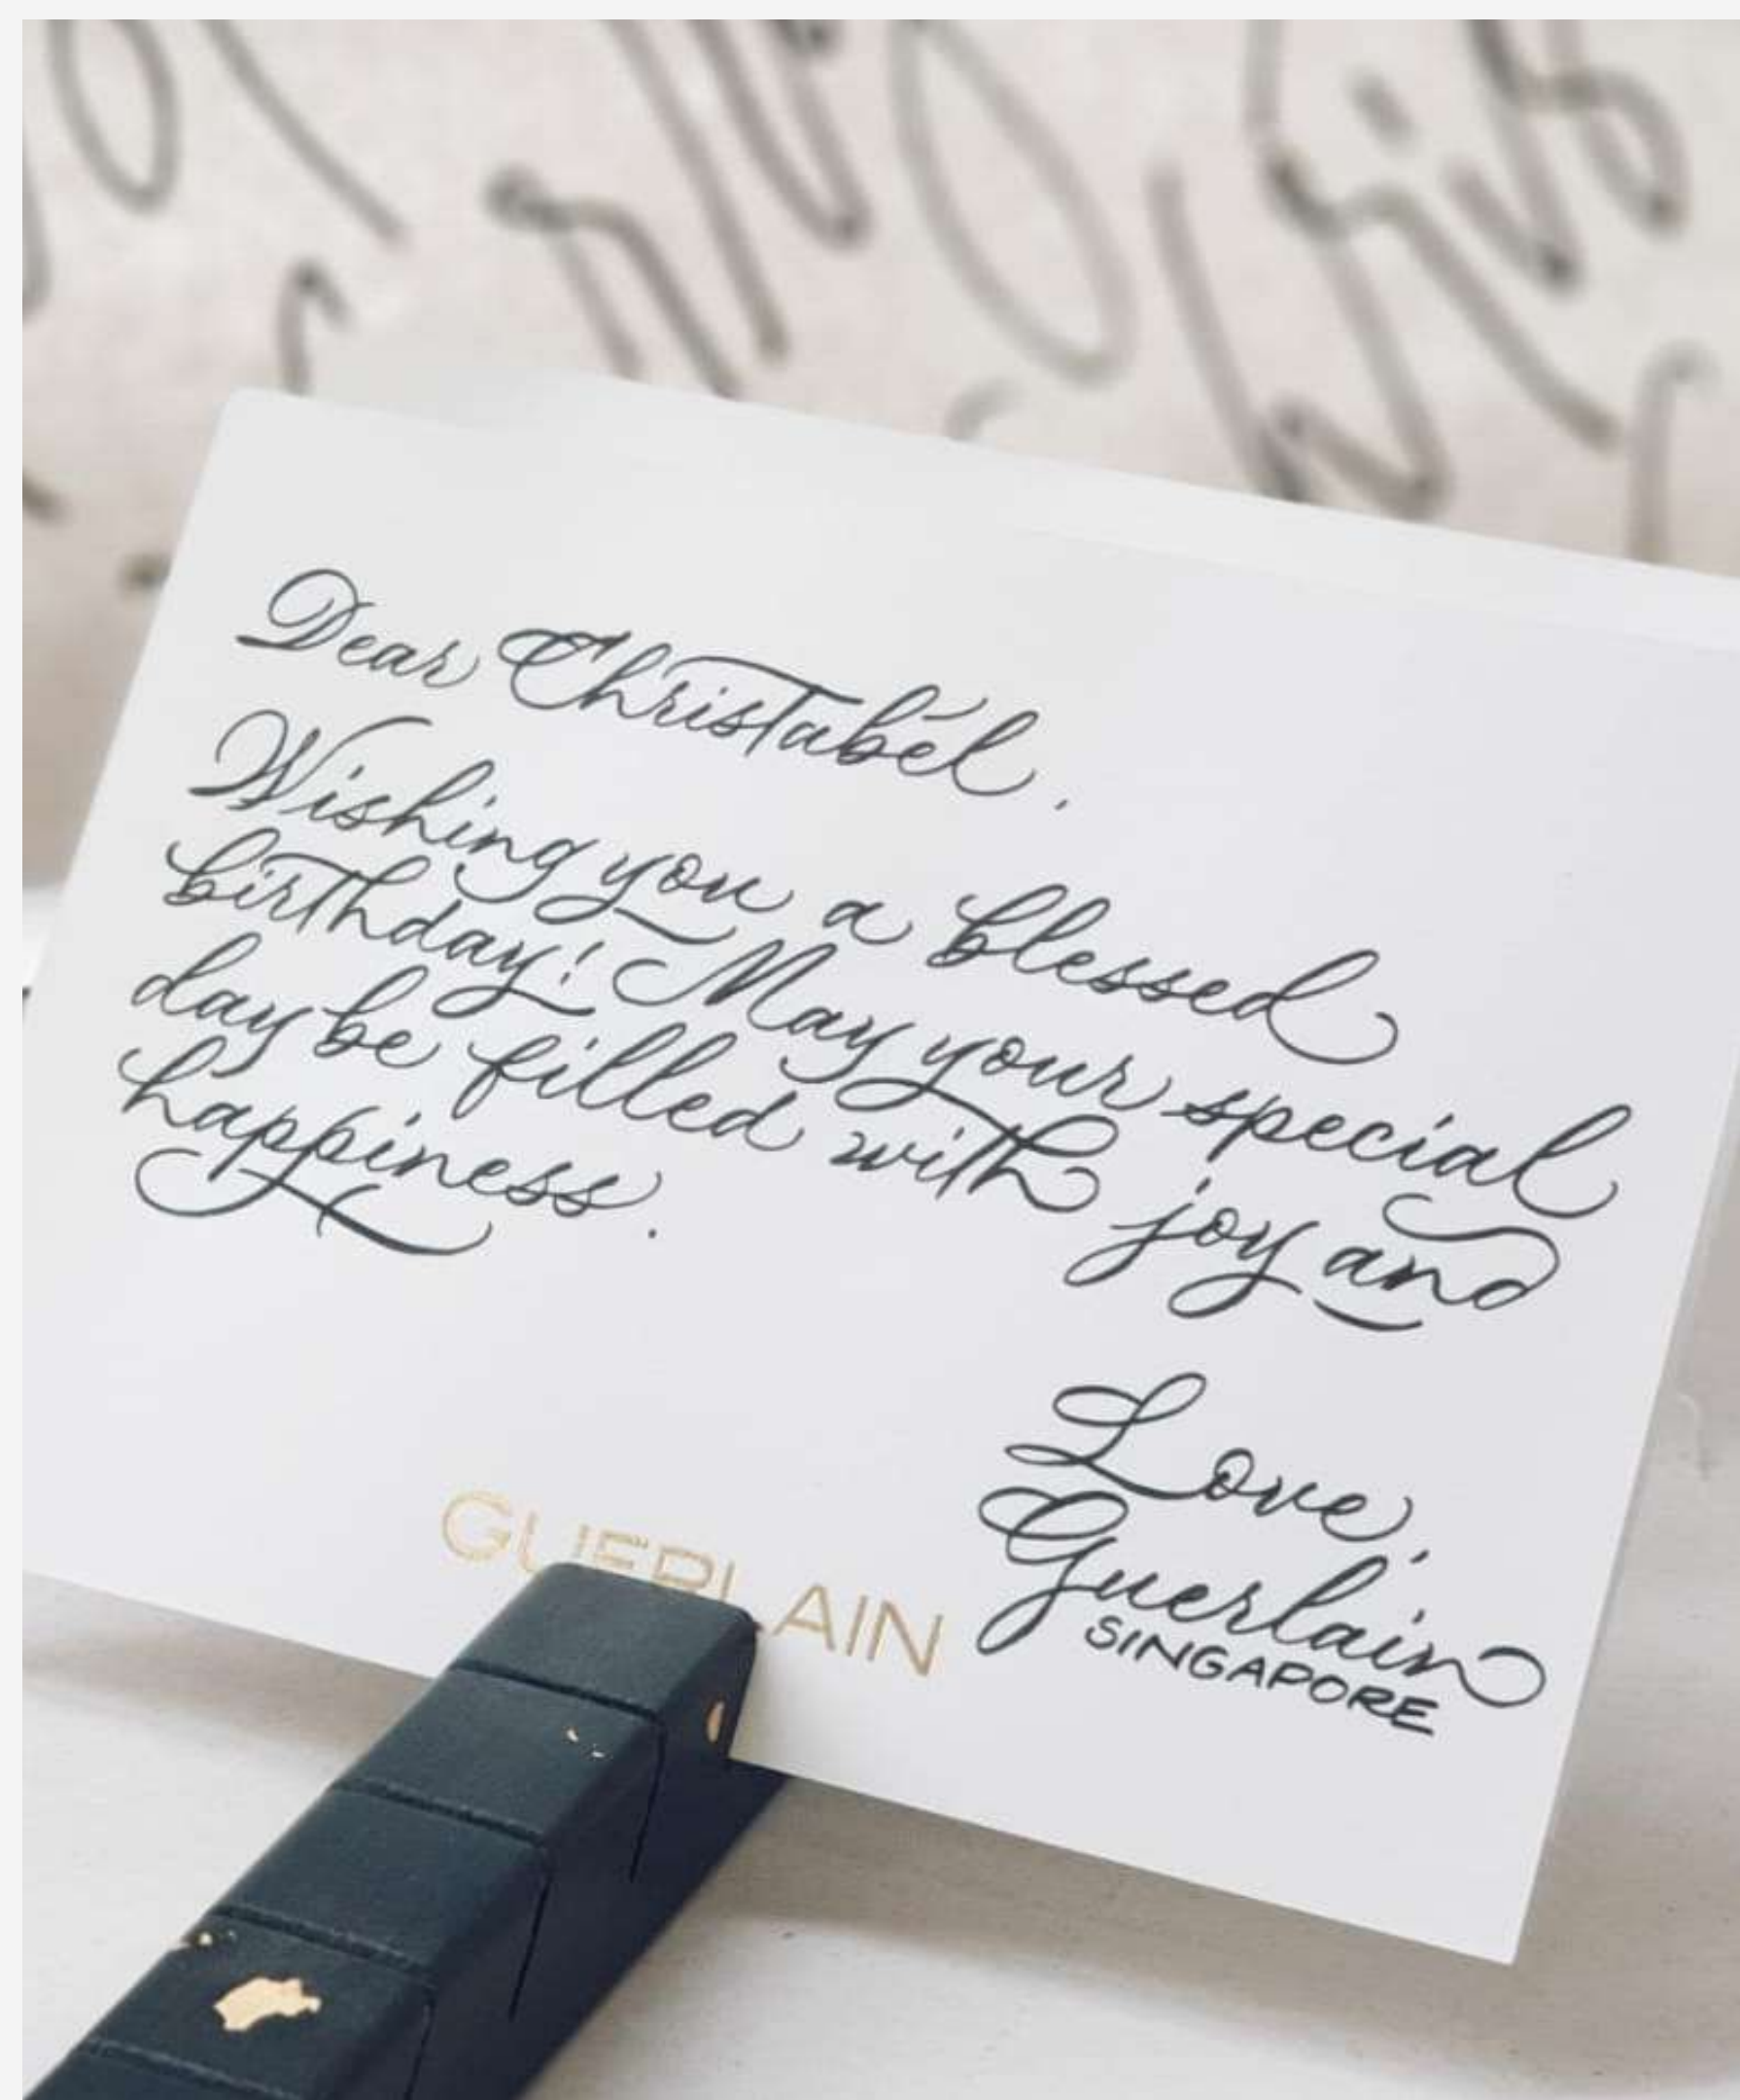 Dear Christabél,
Wishing you a blessed
birthday! May your special
day be filled with joy and
happiness.
Love,
Guerlain
SINGAPORE
GUERLAIN